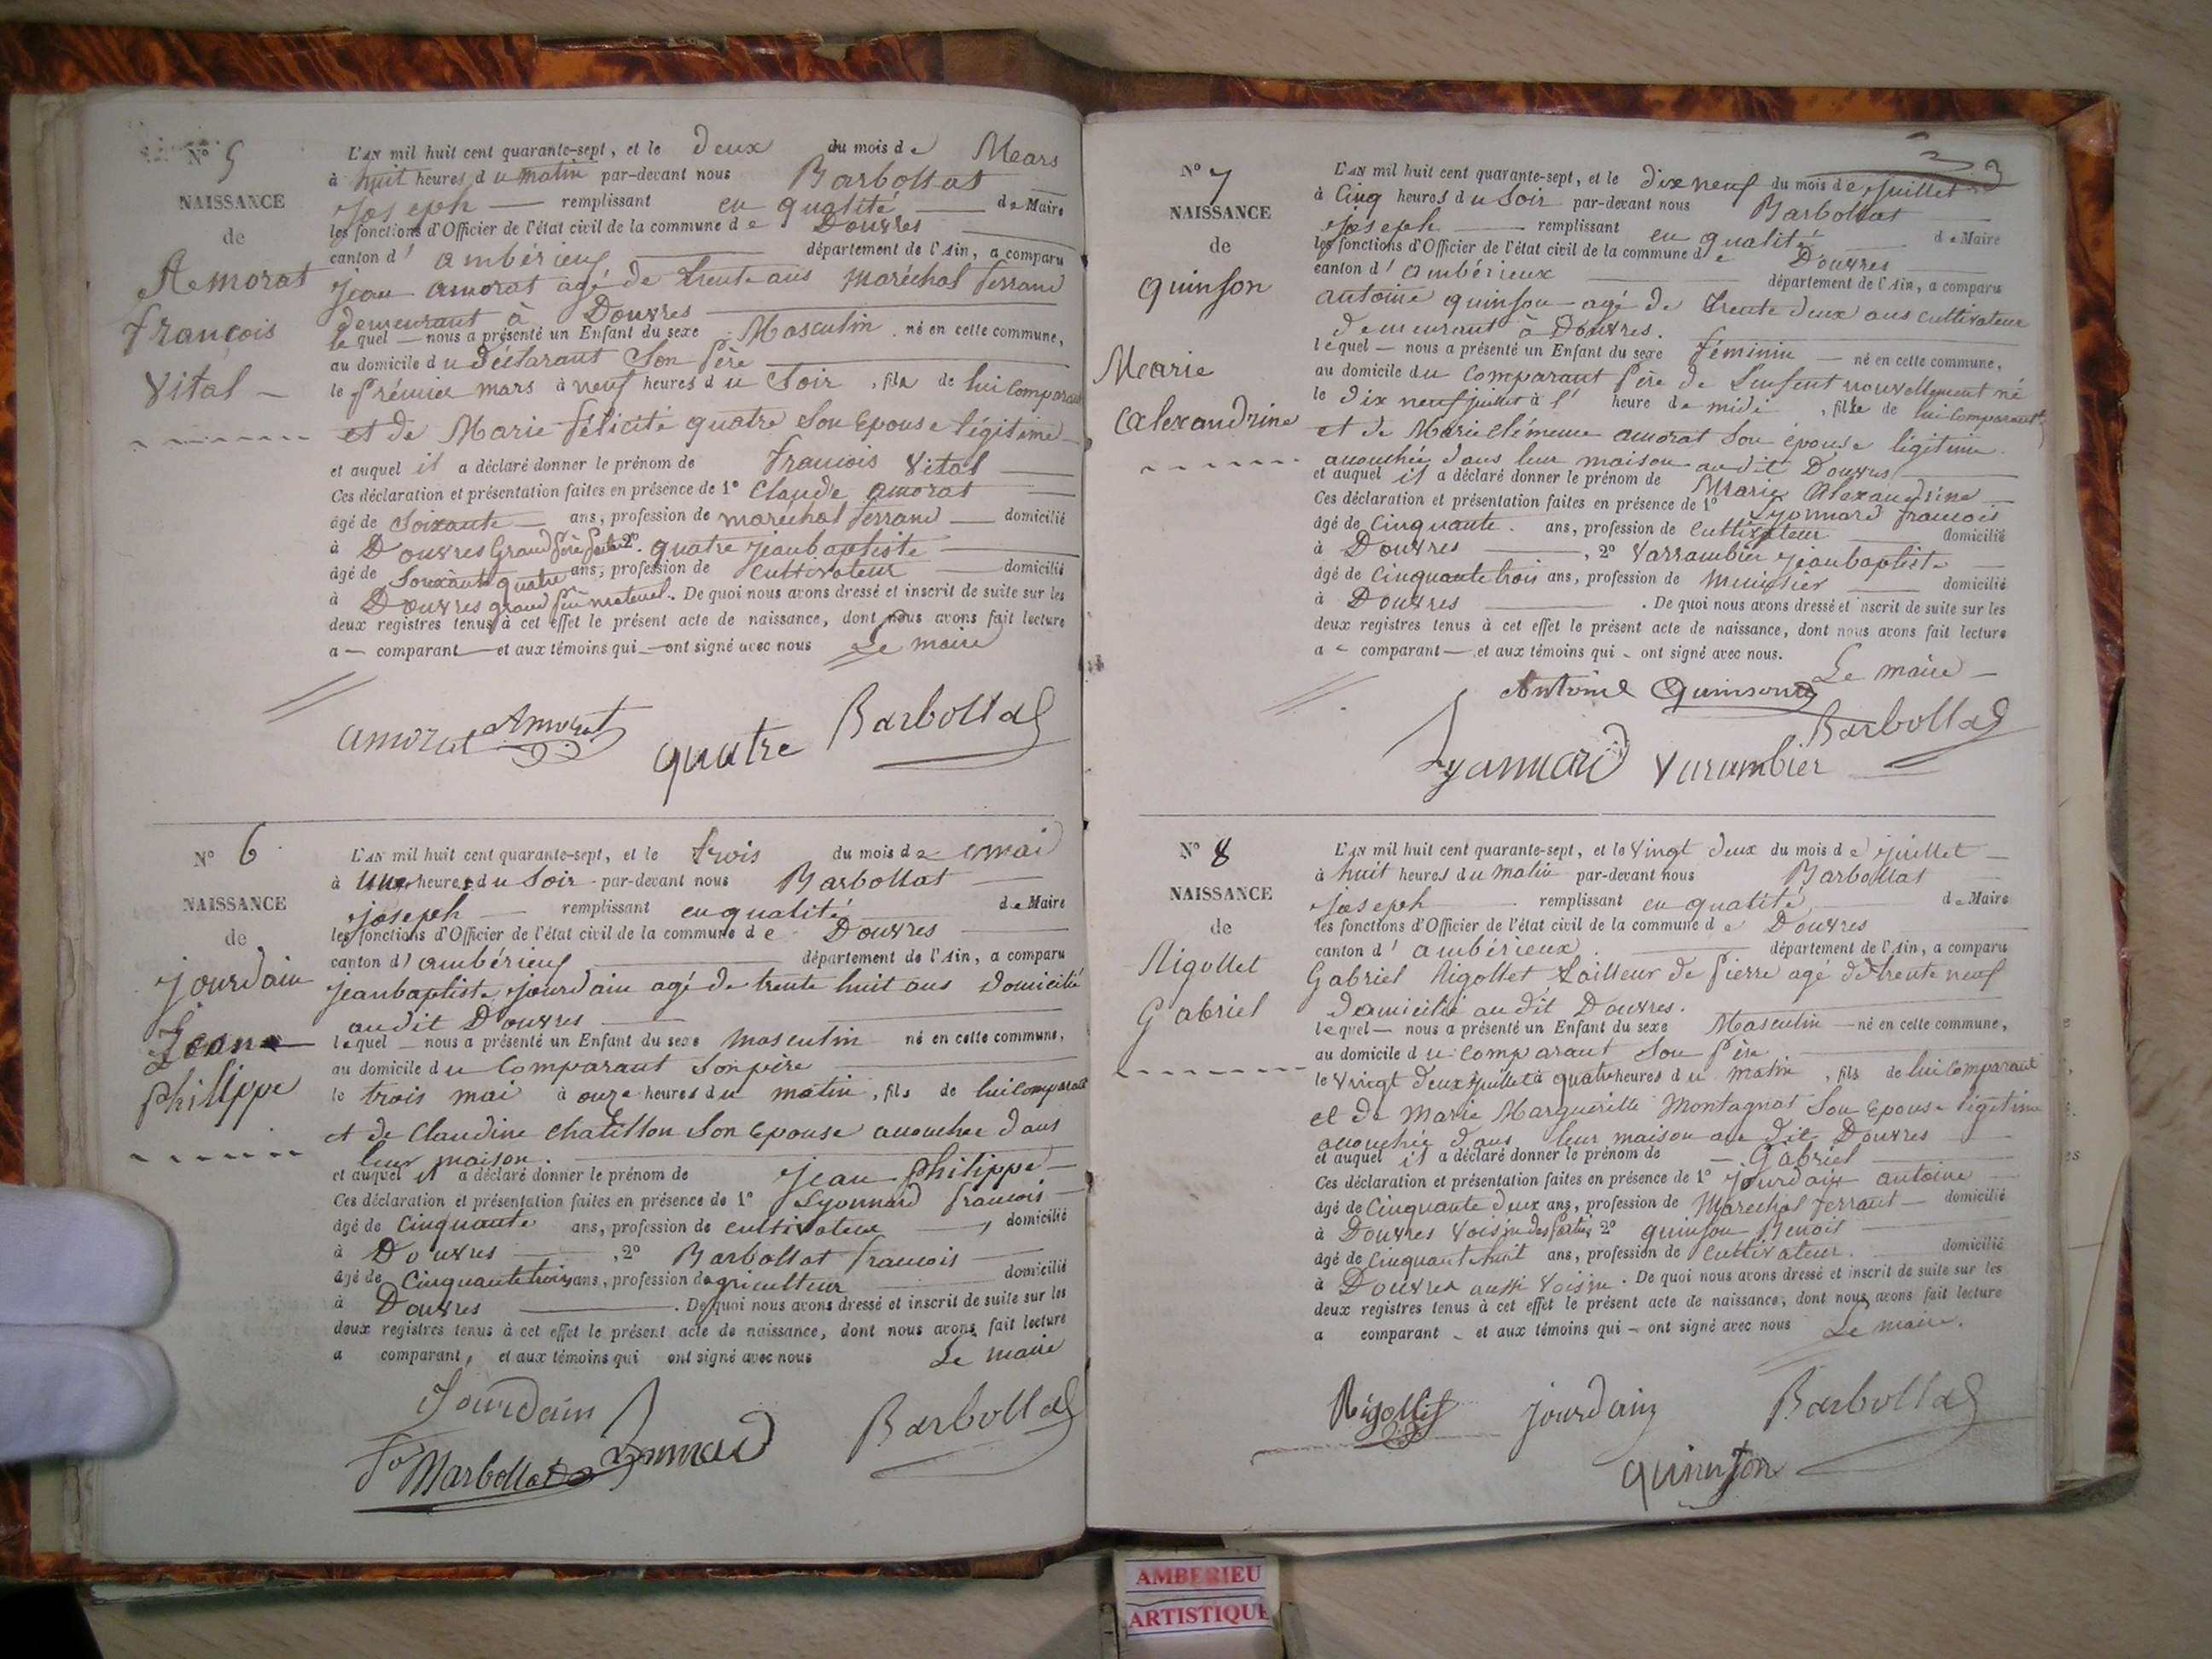 N° 5
NAISSANCE
de
Amorat
François
Vital
L'AN mil huit cent quarante-sept, et le deux du mois de Mars
à huit heures du matin par-devant nous Barbollat
Joseph remplissant en qualité de Maire
les fonctions d'Officier de l'état civil de la commune de Douvres
canton d' ambérieux département de l'Ain, a comparu
jean amorat agé de trente ans maréchal ferrand
demeurant à Douvres
lequel nous a présenté un Enfant du sexe Masculin né en cette commune,
au domicile du déclarant Son père
le prémier mars à neuf heures du Soir, fils de lui Comparant
et de Marie félicité quatre Son Epouse légitime
et auquel il a déclaré donner le prénom de francois Vital
Ces déclaration et présentation faites en présence de 1° Claude amorat
âgé de Soixante ans, profession de maréchal ferrand domicilié
à Douvres Grand père 2° quatre jeanbaptiste
âgé de Soixante quatre ans, profession de Cultivateur domicilié
à Douvres grand père maternel. De quoi nous avons dressé et inscrit de suite sur les
deux registres tenus à cet effet le présent acte de naissance, dont nous avons fait lecture
a comparant et aux témoins qui ont signé avec nous Le maire
amorat Amorat quatre Barbollat
N° 6
NAISSANCE
de
jourdain
Jean
philippe
L'AN mil huit cent quarante-sept, et le trois du mois de mai
à une heure du Soir par-devant nous Barbollat
joseph remplissant en qualité de Maire
les fonctions d'Officier de l'état civil de la commune de Douvres
canton d' ambérieux département de l'Ain, a comparu
jeanbaptiste jourdain agé de trente huit ans Domicilié
audit Douvres
lequel nous a présenté un Enfant du sexe masculin né en cette commune,
au domicile du Comparant Son père
le trois mai à onze heures du matin, fils de lui Comparant
et de Claudine Chatillon Son Epouse accouchee dans
leur maison.
et auquel il a déclaré donner le prénom de jean philippe
Ces déclaration et présentation faites en présence de 1° Lyonnard francois
âgé de Cinquante ans, profession de cultivateur, domicilié
à Douvres, 2° Barbollat francois
âgé de Cinquante trois ans, profession dagriculteur domicilié
à Douvres. De quoi nous avons dressé et inscrit de suite sur les
deux registres tenus à cet effet le présent acte de naissance, dont nous avons fait lecture
a comparant, et aux témoins qui ont signé avec nous Le maire
Jourdain
Barbollat
N° 7
NAISSANCE
de
quinson
Marie
Alexandrine
L'AN mil huit cent quarante-sept, et le dix neuf du mois de juillet
à Cinq heures du Soir par-devant nous Barbollat
joseph remplissant en qualité de Maire
les fonctions d'Officier de l'état civil de la commune de Douvres
canton d' ambérieux département de l'Ain, a comparu
antoine quinson agé de trente deux ans cultivateur
demeurant à Douvres.
lequel nous a présenté un Enfant du sexe féminin né en cette commune,
au domicile du Comparant père de Lenfent nouvellement né
le dix neuf juillet à l' heure de midi, fille de lui Comparant
et de Marie clémence amorat Son épouse légitime.
accouchée dans leur maison audit Douvres
et auquel il a déclaré donner le prénom de Marie Alexandrine
Ces déclaration et présentation faites en présence de 1° Lyonnard francois
âgé de Cinquante ans, profession de Cultivateur domicilié
à Douvres, 2° Varrambier jeanbaptiste
âgé de Cinquante trois ans, profession de domicilié
à Douvres. De quoi nous avons dressé et inscrit de suite sur les
deux registres tenus à cet effet le présent acte de naissance, dont nous avons fait lecture
a comparant et aux témoins qui ont signé avec nous.
Le maire
Antoine Quinson
Barbollat
Lyannard Varambier
N° 8
NAISSANCE
de
Rigollet
Gabriel
L'AN mil huit cent quarante-sept, et le Vingt deux du mois de juillet
à huit heures du matin par-devant nous Barbollat
joseph remplissant en qualité de Maire
les fonctions d'Officier de l'état civil de la commune de Douvres
canton d' ambérieux département de l'Ain, a comparu
Gabriel Rigollet tailleur de pierre agé de trente neuf
domicilié audit Douvres.
lequel nous a présenté un Enfant du sexe Masculin né en cette commune,
au domicile du Comparant Son père
le Vingt deux juillet à quatre heures du matin, fils de lui Comparant
et de Marie Margueritte Montagnat Son Epouse légitime
accouchée dans leur maison au dit Douvres
et auquel il a déclaré donner le prénom de Gabriel
Ces déclaration et présentation faites en présence de 1° jourdain antoine
âgé de Cinquante deux ans, profession de Marechal ferrant domicilié
à Douvres Voisin des parties, 2° quinson Benoit
âgé de Cinquante huit ans, profession de Cultivateur. domicilié
à Douvres aussi Voisin. De quoi nous avons dressé et inscrit de suite sur les
deux registres tenus à cet effet le présent acte de naissance, dont nous avons fait lecture
a comparant et aux témoins qui ont signé avec nous Le maire.
Rigollet jourdain Barbollat
quinson
AMBERIEU
ARTISTIQUE